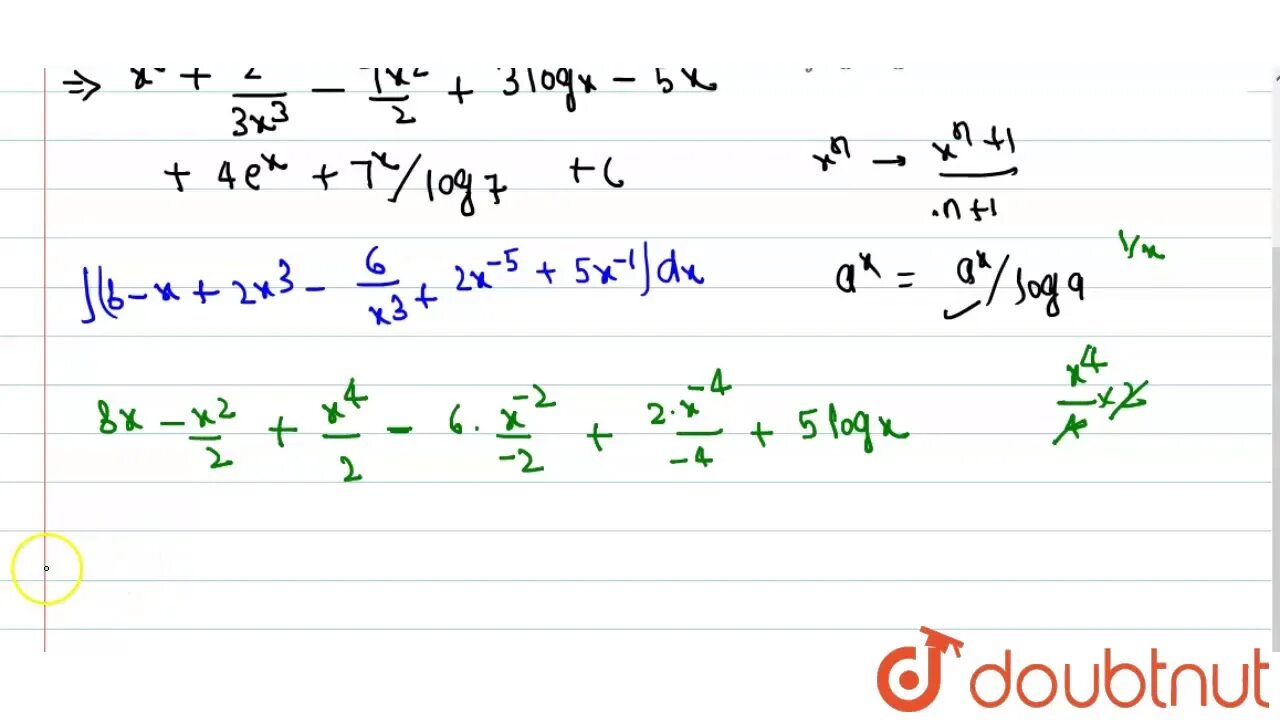 ⇒ x² + 2/3x³ − 7x²/2 + 3logx − 5x
+ 4eˣ + 7ˣ/log7 + C
xⁿ → xⁿ⁺¹/n+1
1/x
∫(8 − x + 2x³ − 6/x³ + 2x⁻⁵ + 5x⁻¹)dx
aˣ = aˣ/log a
x⁴/4 × 2
8x − x²/2 + x⁴/2 − 6·x⁻²/−2 + 2·x⁻⁴/−4 + 5logx
doubtnut